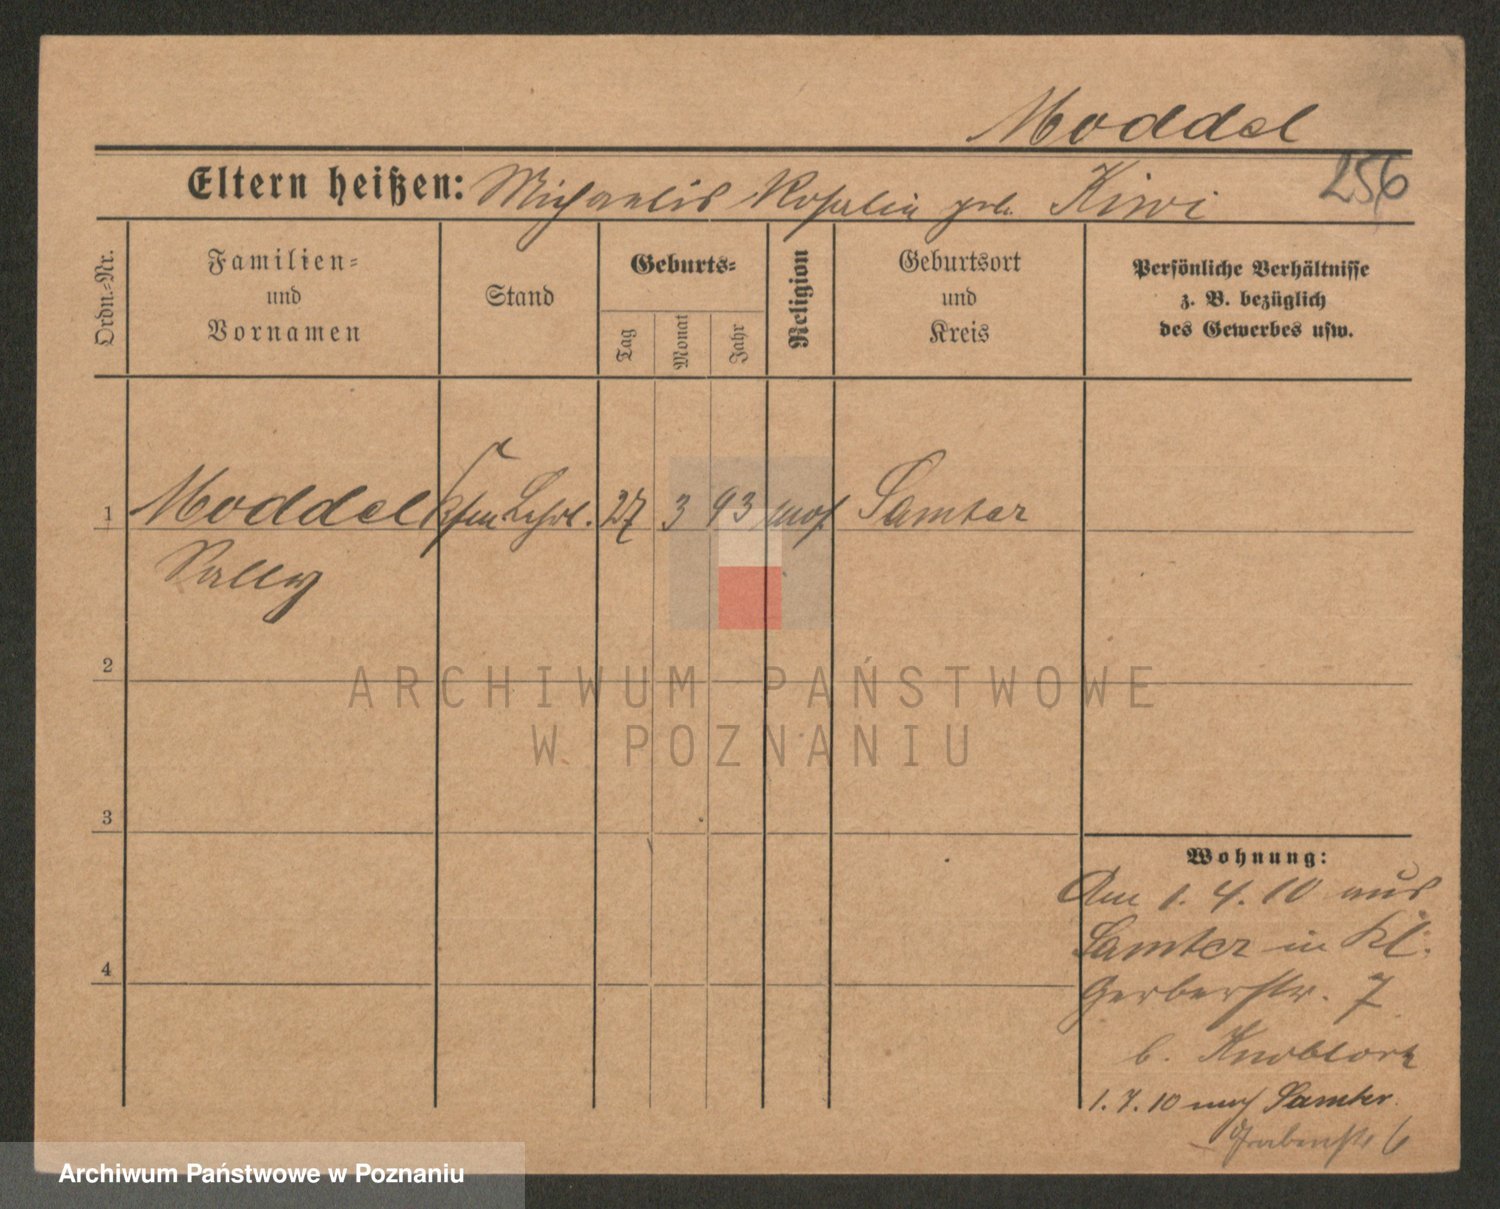 Moddel
256
Eltern heißen: Michaelis Rosalie geb. Kiwi
Ordn.-Nr.
Familien-
und
Vornamen
Stand
Geburts-
Tag
Monat
Jahr
Religion
Geburtsort
und
Kreis
Persönliche Verhältnisse
z. B. bezüglich
des Gewerbes usw.
1
Moddel
Kfm Lehrl.
27
3
93
mos
Samter
Sally
2
3
4
Wohnung:
Am 1. 4. 10 aus
Samter in Kl.
Gerberstr. 7
b. Knobloch
1. 7. 10 nach Samter
ARCHIWUM PAŃSTWOWE
W POZNANIU
Archiwum Państwowe w Poznaniu